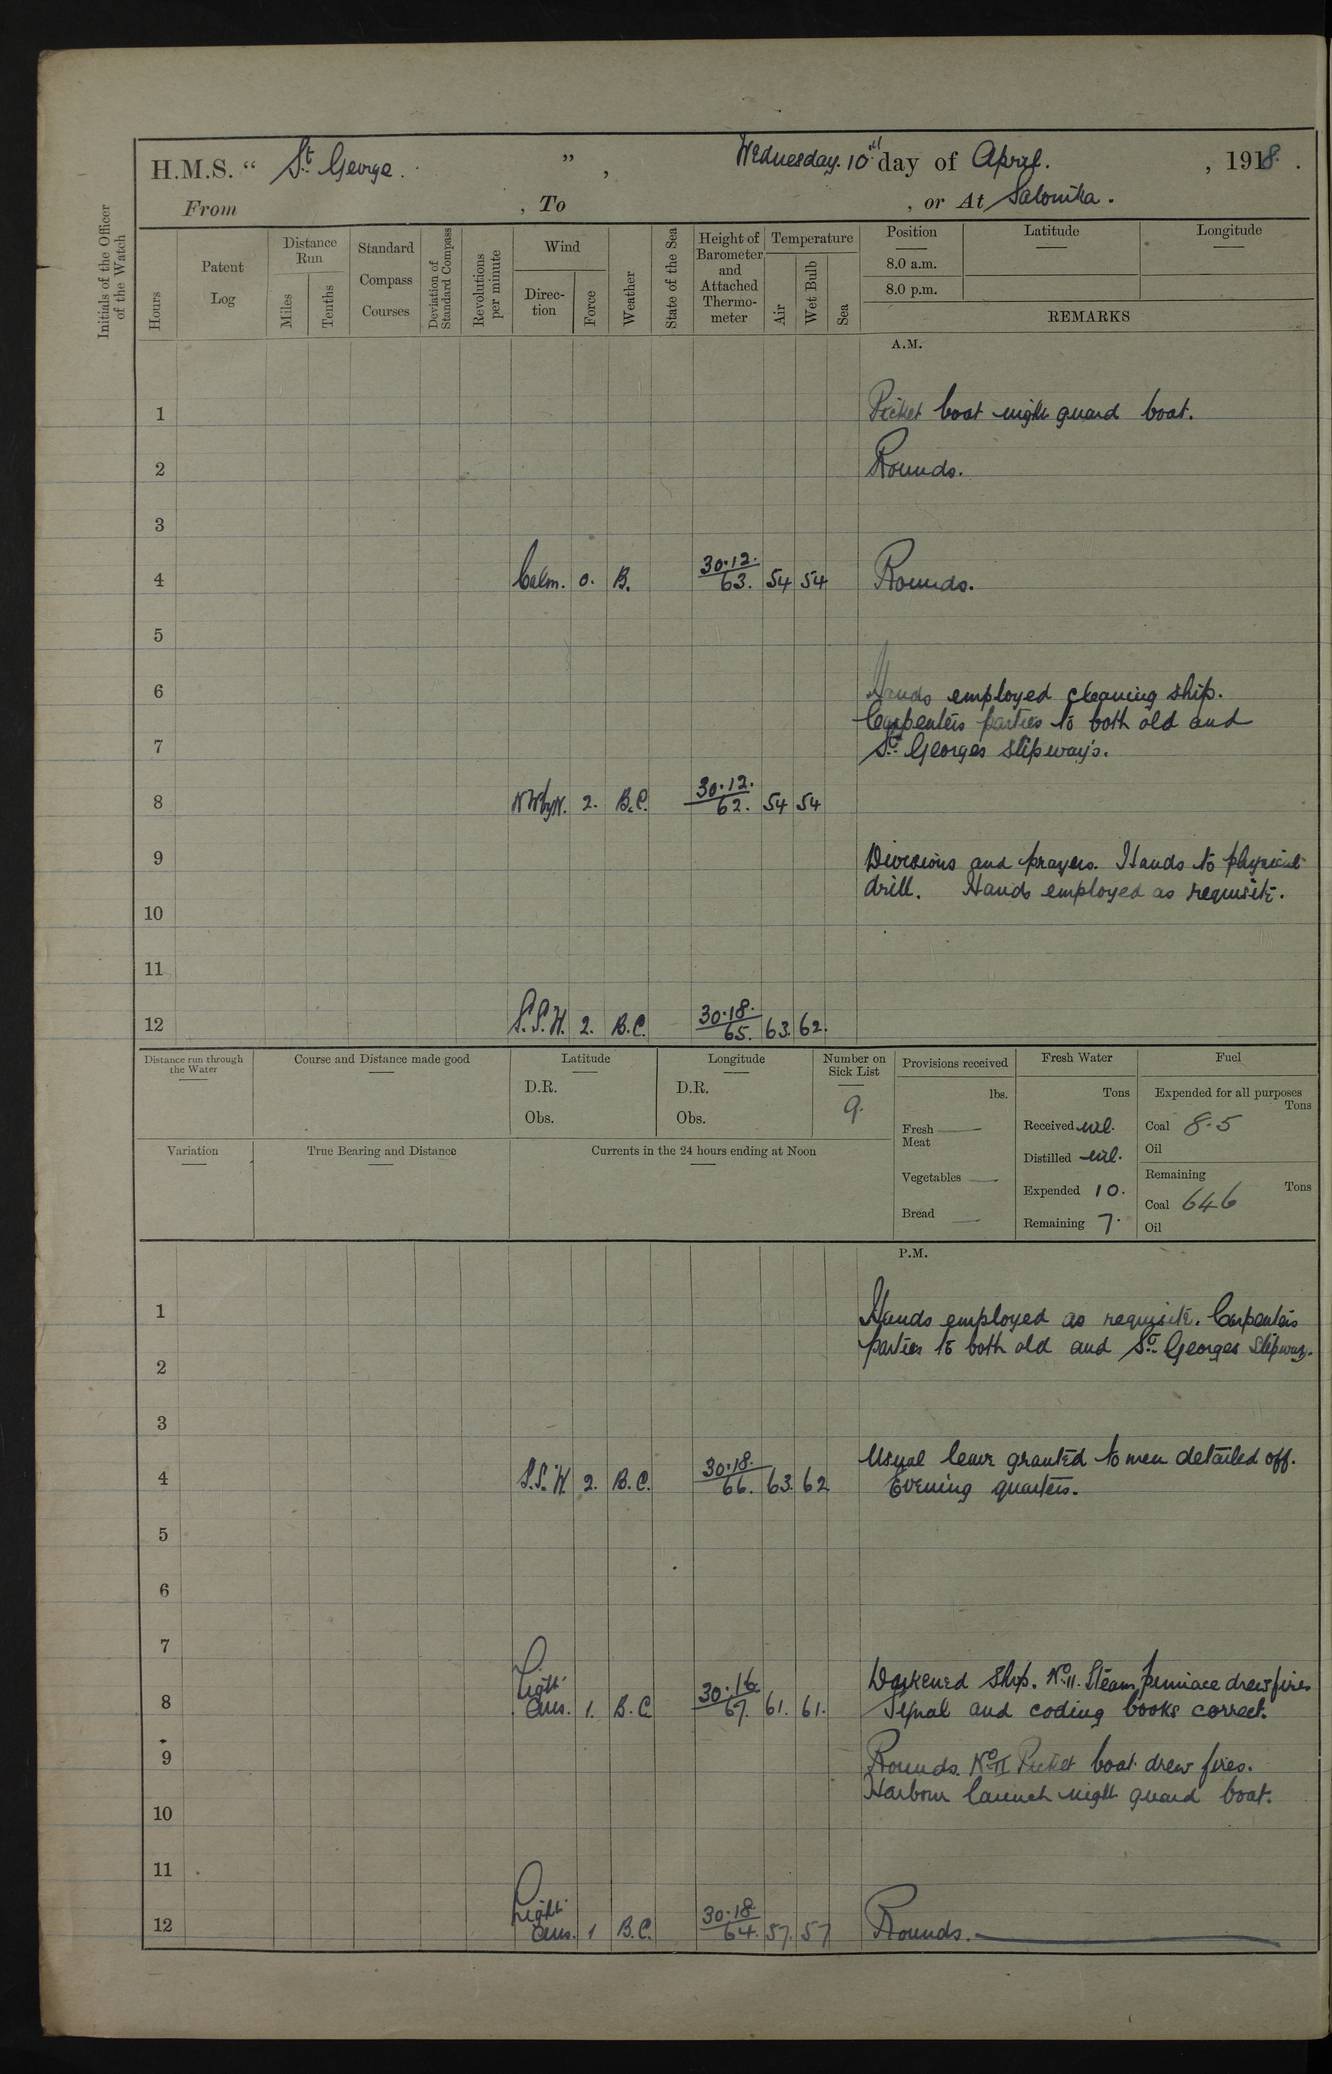 H.M.S. “ St George. ” , Wednesday. 10th day of April. , 1918.
From , To , or At Salonika.
Initials of the Officer of the Watch
Hours
Patent Log
Distance Run
Miles
Tenths
Standard Compass Courses
Deviation of Standard Compass
Revolutions per minute
Wind
Direc-tion
Force
Weather
State of the Sea
Height of Barometer and Attached Thermo-meter
Temperature
Air
Wet Bulb
Sea
Position Latitude Longitude
8.0 a.m.
8.0 p.m.
REMARKS
A.M.
1 Picket boat night guard boat.
2 Rounds.
3
4 Calm. 0. B. 30.12. / 63. 54 54 Rounds.
5
6 Hands employed cleaning ship.
Carpenters parties to both old and
7 St. Georges slipways.
8 NWbyN. 2. B.C. 30.12. / 62. 54 54
9 Divisions and prayers. Hands to physical
drill. Hands employed as requisite.
10
11
12 S.S.W. 2. B.C. 30.18. / 65. 63. 62.
Distance run through the Water
Course and Distance made good
Latitude
D.R.
Obs.
Longitude
D.R.
Obs.
Number on Sick List
9.
Provisions received
lbs.
Fresh Meat —
Vegetables —
Bread —
Fresh Water
Tons
Received nil.
Distilled nil.
Expended 10.
Remaining 7.
Fuel
Expended for all purposes
Tons
Coal 8.5
Oil
Remaining
Tons
Coal 646
Oil
Variation
True Bearing and Distance
Currents in the 24 hours ending at Noon
P.M.
1 Hands employed as requisite. Carpenters
parties to both old and St. Georges slipway.
2
3
4 S.S.W. 2. B.C. 30.18. / 66. 63. 62 Usual leave granted to men detailed off.
Evening quarters.
5
6
7
8 Light airs. 1. B.C. 30.16. / 67. 61. 61. Darkened ship. No. 11. Steam pinnace drew fires
Signal and coding books correct.
9 Rounds. No. II Picket boat drew fires.
Harbour launch night guard boat.
10
11
12 Light airs. 1 B.C. 30.18. / 64. 57. 57 Rounds.